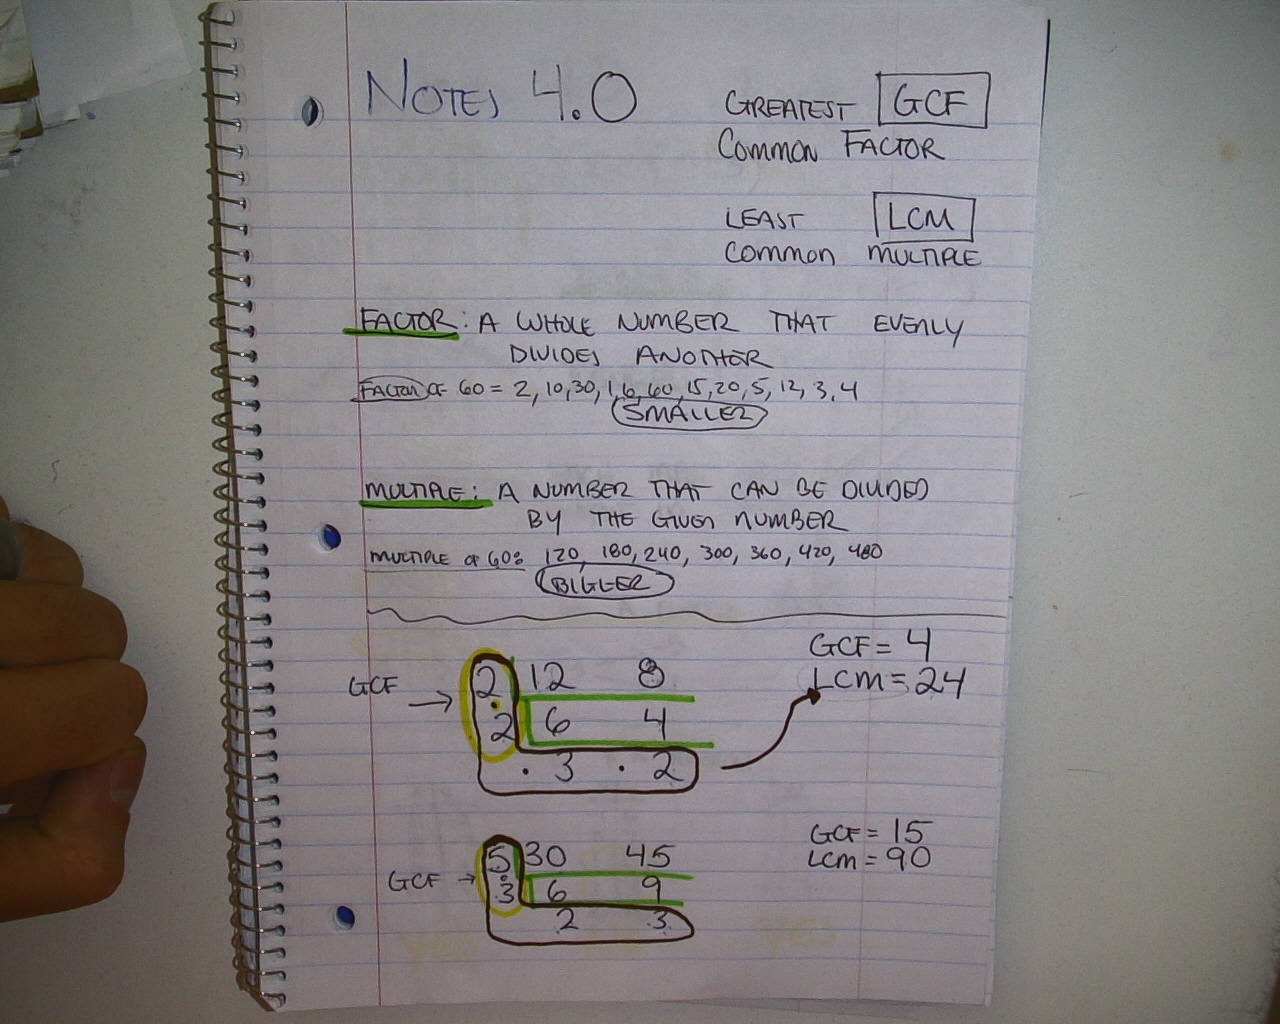 NOTES 4.0
GREATEST GCF
COMMON FACTOR
LEAST LCM
COMMON MULTIPLE
FACTOR: A WHOLE NUMBER THAT EVENLY
DIVIDES ANOTHER
FACTOR OF 60 = 2, 10, 30, 1, 6, 60, 15, 20, 5, 12, 3, 4
SMALLER
MULTIPLE: A NUMBER THAT CAN BE DIVIDED
BY THE GIVEN NUMBER
MULTIPLE OF 60: 120, 180, 240, 300, 360, 420, 480
BIGGER
GCF = 4
LCM = 24
GCF → 2 12 8
· 2 6 4
· 3 · 2
GCF = 15
LCM = 90
5 30 45
GCF → · 3 6 9
2 3